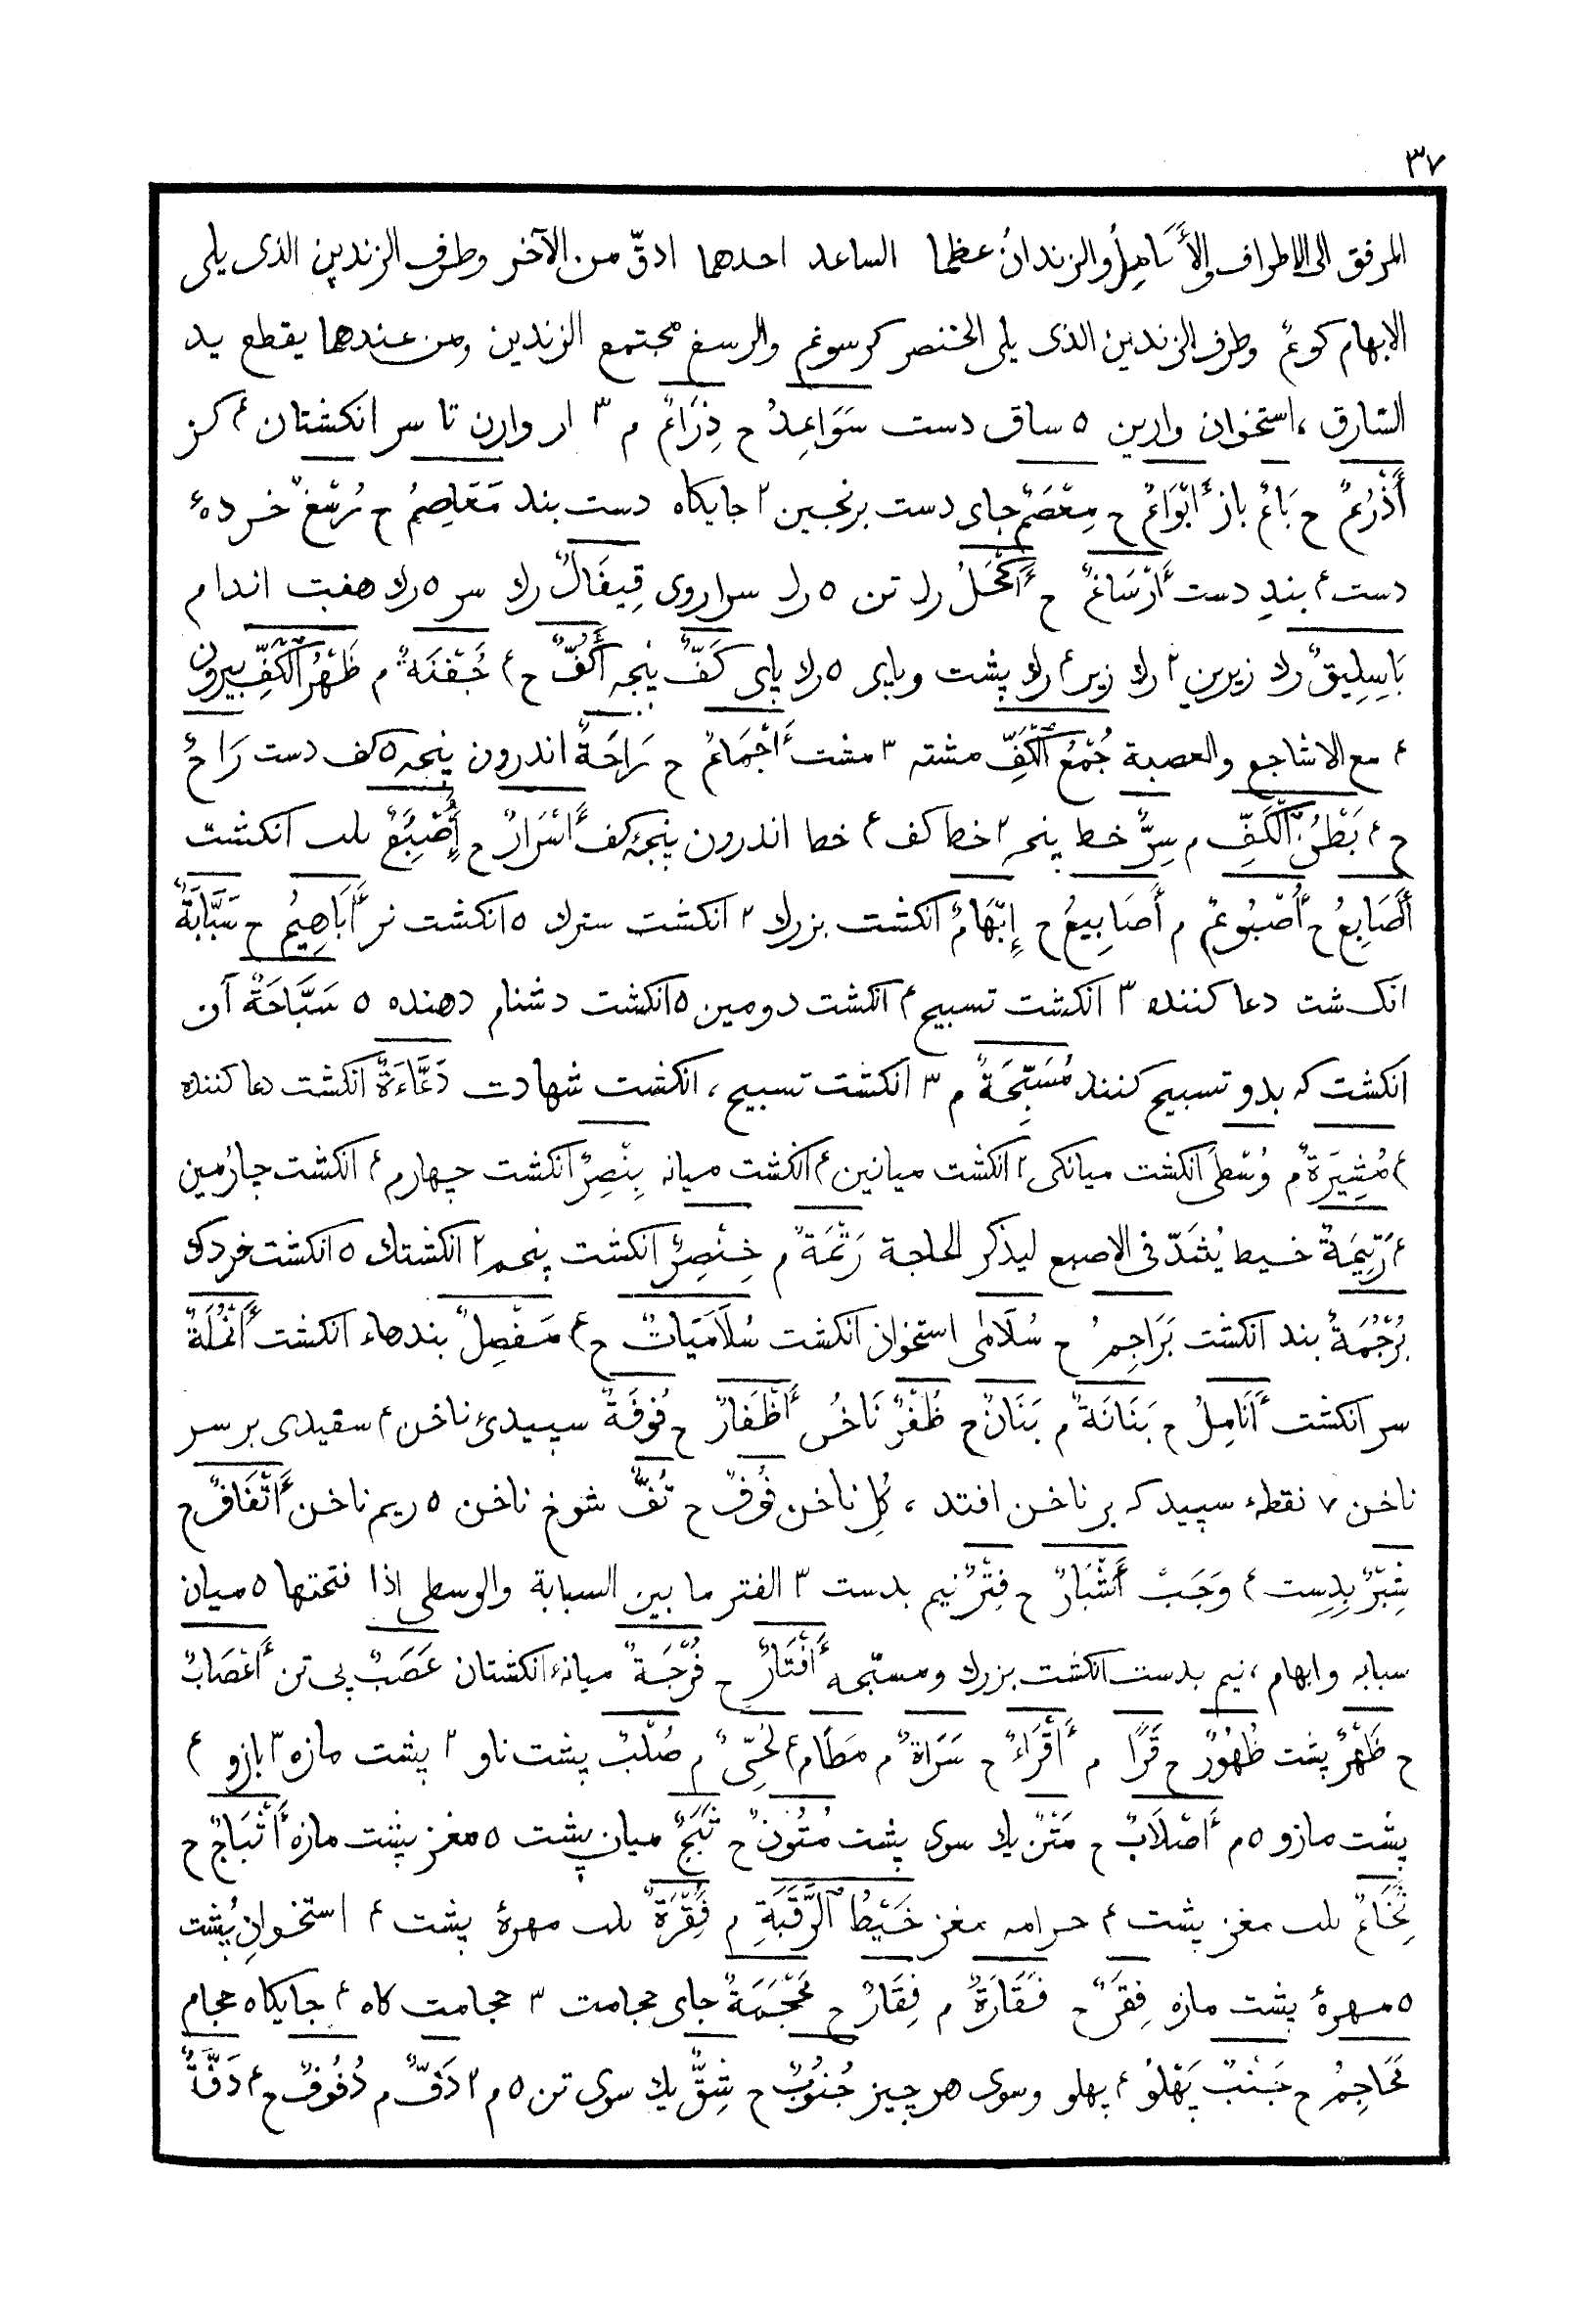 ٣٧
المرفق الى الاطراف والأنامل والزندان عظما الساعد احدهما ادقّ من الآخر وطرف الزندين الذى يلى
الابهام كوعٌ وطرف الزندين الذى يلى الخنصر كرسوغم والرسغ مجتمع الزندين ومن عندهما يقطع يد
السّارق ، استخوان وارين ٥ ساق دست سَوَاعِدُ ح ذِرَاعٌ م ٣ ار وارن تا سر انكشتان ۴ كز
أَذْرُعٌ ح بَاعٌ باز أَبْوَاعٌ ح مِعْصَمٌ جاى دست برنجين ٢ جايكاه دست بند مَعَاصِمُ ح رُسْغٌ خرده‌ٔ
دست ۴ بندِ دست أَرْسَاغٌ ح أَكْحَلُ رك تن ٥ رك سراروى قِيفَالٌ رك سر ٥ رك هفت اندام
بَاسِلِيقٌ رك زيرين ٢ رك زير ۴ رك پشت وپاى ٥ رك پاى كَفٌّ پنجه أَكُفٌّ ح ۴ جَفْنَةٌ م ظَهْرُ ٱلْكَفِّ بيرون
۴ مع الاشاجع والعصبة جُمْعُ ٱلْكَفِّ مشته ٣ مشت أَجْمَاعٌ ح رَاحَةٌ اندرون پنجه ٥ كف دست رَاحٌ
ح ۴ بَطْنُ ٱلْكَفِّ م سِرٌّ خط پنجه ٢ خط كف ۴ خطا اندرون پنجهٔ كف أَسْرَارٌ ح إِصْبَعٌ يك انكشت
أَصَابِعُ ح أُصْبُوعٌ م أَصَابِيعُ ح إِبْهَامٌ انكشت بزرك ٢ انكشت سترك ٥ انكشت نر أَبَاهِيمُ ح سَبَّابَةٌ
انكشت دعا كننده ٣ انكشت تسبيح ۴ انكشت دومين ٥ انكشت دشنام دهنده ٥ سَبَّاحَةٌ آن
انكشت كه بدو تسبيح كنند مُسَبِّحَةٌ م ٣ انكشت تسبيح ، انكشت شهادت دَعَّاءَةٌ انكشت دعا كننده
۴ مُشِيرَةٌ م وُسْطَى انكشت ميانكى ٢ انكشت ميانين ۴ انكشت ميانه بِنْصِرٌ انكشت چهارم ۴ انكشت چارمين
۴ رَتِيمَةٌ خيط يُشَدّ فى الاصبع ليذكر الحاجة رَتْمَةٌ م خِنْصِرٌ انكشت پنجم ٢ انكشتك ٥ انكشت خردك
بُرْجُمَةٌ بند انكشت بَرَاجِمُ ح سُلَامَى استخوان انكشت سُلَامَيَاتٌ ح ۴ مَفْصِلٌ بندهاء انكشت أَنْمُلَةٌ
سر انكشت أَنَامِلُ ح بَنَانَةٌ م بَنَانٌ ح ظُفْرٌ نَاخُن أَظْفَارٌ ح فُوفَةٌ سپيدئ ناخن ۴ سقيدى بر سر
ناخن ٧ نقطهء سپيد كه بر ناخن افتد ، كُل ناخن فُوفٌ ح تُفٌّ شوخ ناخن ٥ ريم ناخن أَتْفَافٌ ح
شِبْرٌ بِدِست ۴ وَجَبْ أَشْبَارٌ ح فِتْرٌ نيم بدست ٣ الفتر ما بين السبابة والوسطى اذا فتحتها ٥ ميان
سبابه وابهام ، نيم بدست انكشت بزرك ومسبّحه أَفْتَارٌ ح فُرْجَةٌ ميانهٔ انكشتان عَصَبٌ پى تن أَعْصَابٌ
ح ظَهْرٌ پشت ظُهُورٌ ح قَرًا م أَقْرَاءٌ ح سَرَاةٌ م مَطًا م ۴ لُحِّىٌّ م صُلْبٌ پشت ناو ٢ پشت مازه ٣ بازو ۴
پشت مازو ٥ م أَصْلَابٌ ح مَتْنٌ يك سوى پشت مُتُونٌ ح ثَبَجٌ ميان پشت ٥ مغز پشت مازه أَثْبَاجٌ ح
نُخَاعٌ يك مغز پشت ۴ حرامه مغز خَيْطُ ٱلرَّقَبَةِ م فِقْرَةٌ يك مهرهٔ پشت ۴ استخوانِ پُشت
٥ مهرهٔ پشت مازه فِقَرٌ ح فَقَارَةٌ م فِقَارٌ ح مَحْجَمَةٌ جاى حجامت ٣ حجامت كاه ۴ جايكاه حجام
مَحَاجِمُ ح جَنْبٌ پَهْلُو ۴ پهلو وسوى هر چيز جُنُوبٌ ح شِقٌّ يك سوى تن ٥ م ٢ دَفٌّ م دُفُوفٌ ح ۴ دَفَّةٌ